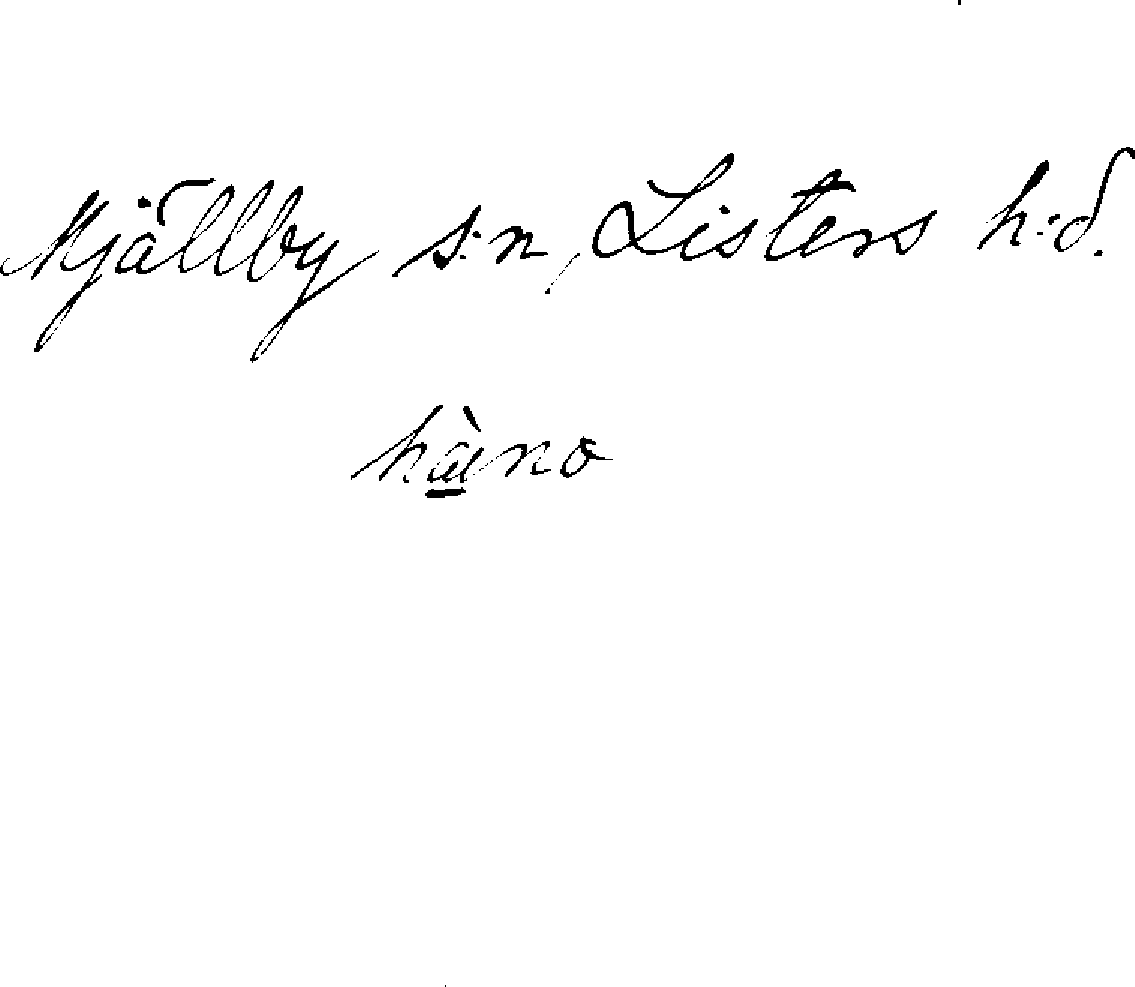 Mjällby s:n, Listers h:d.
hä̀no